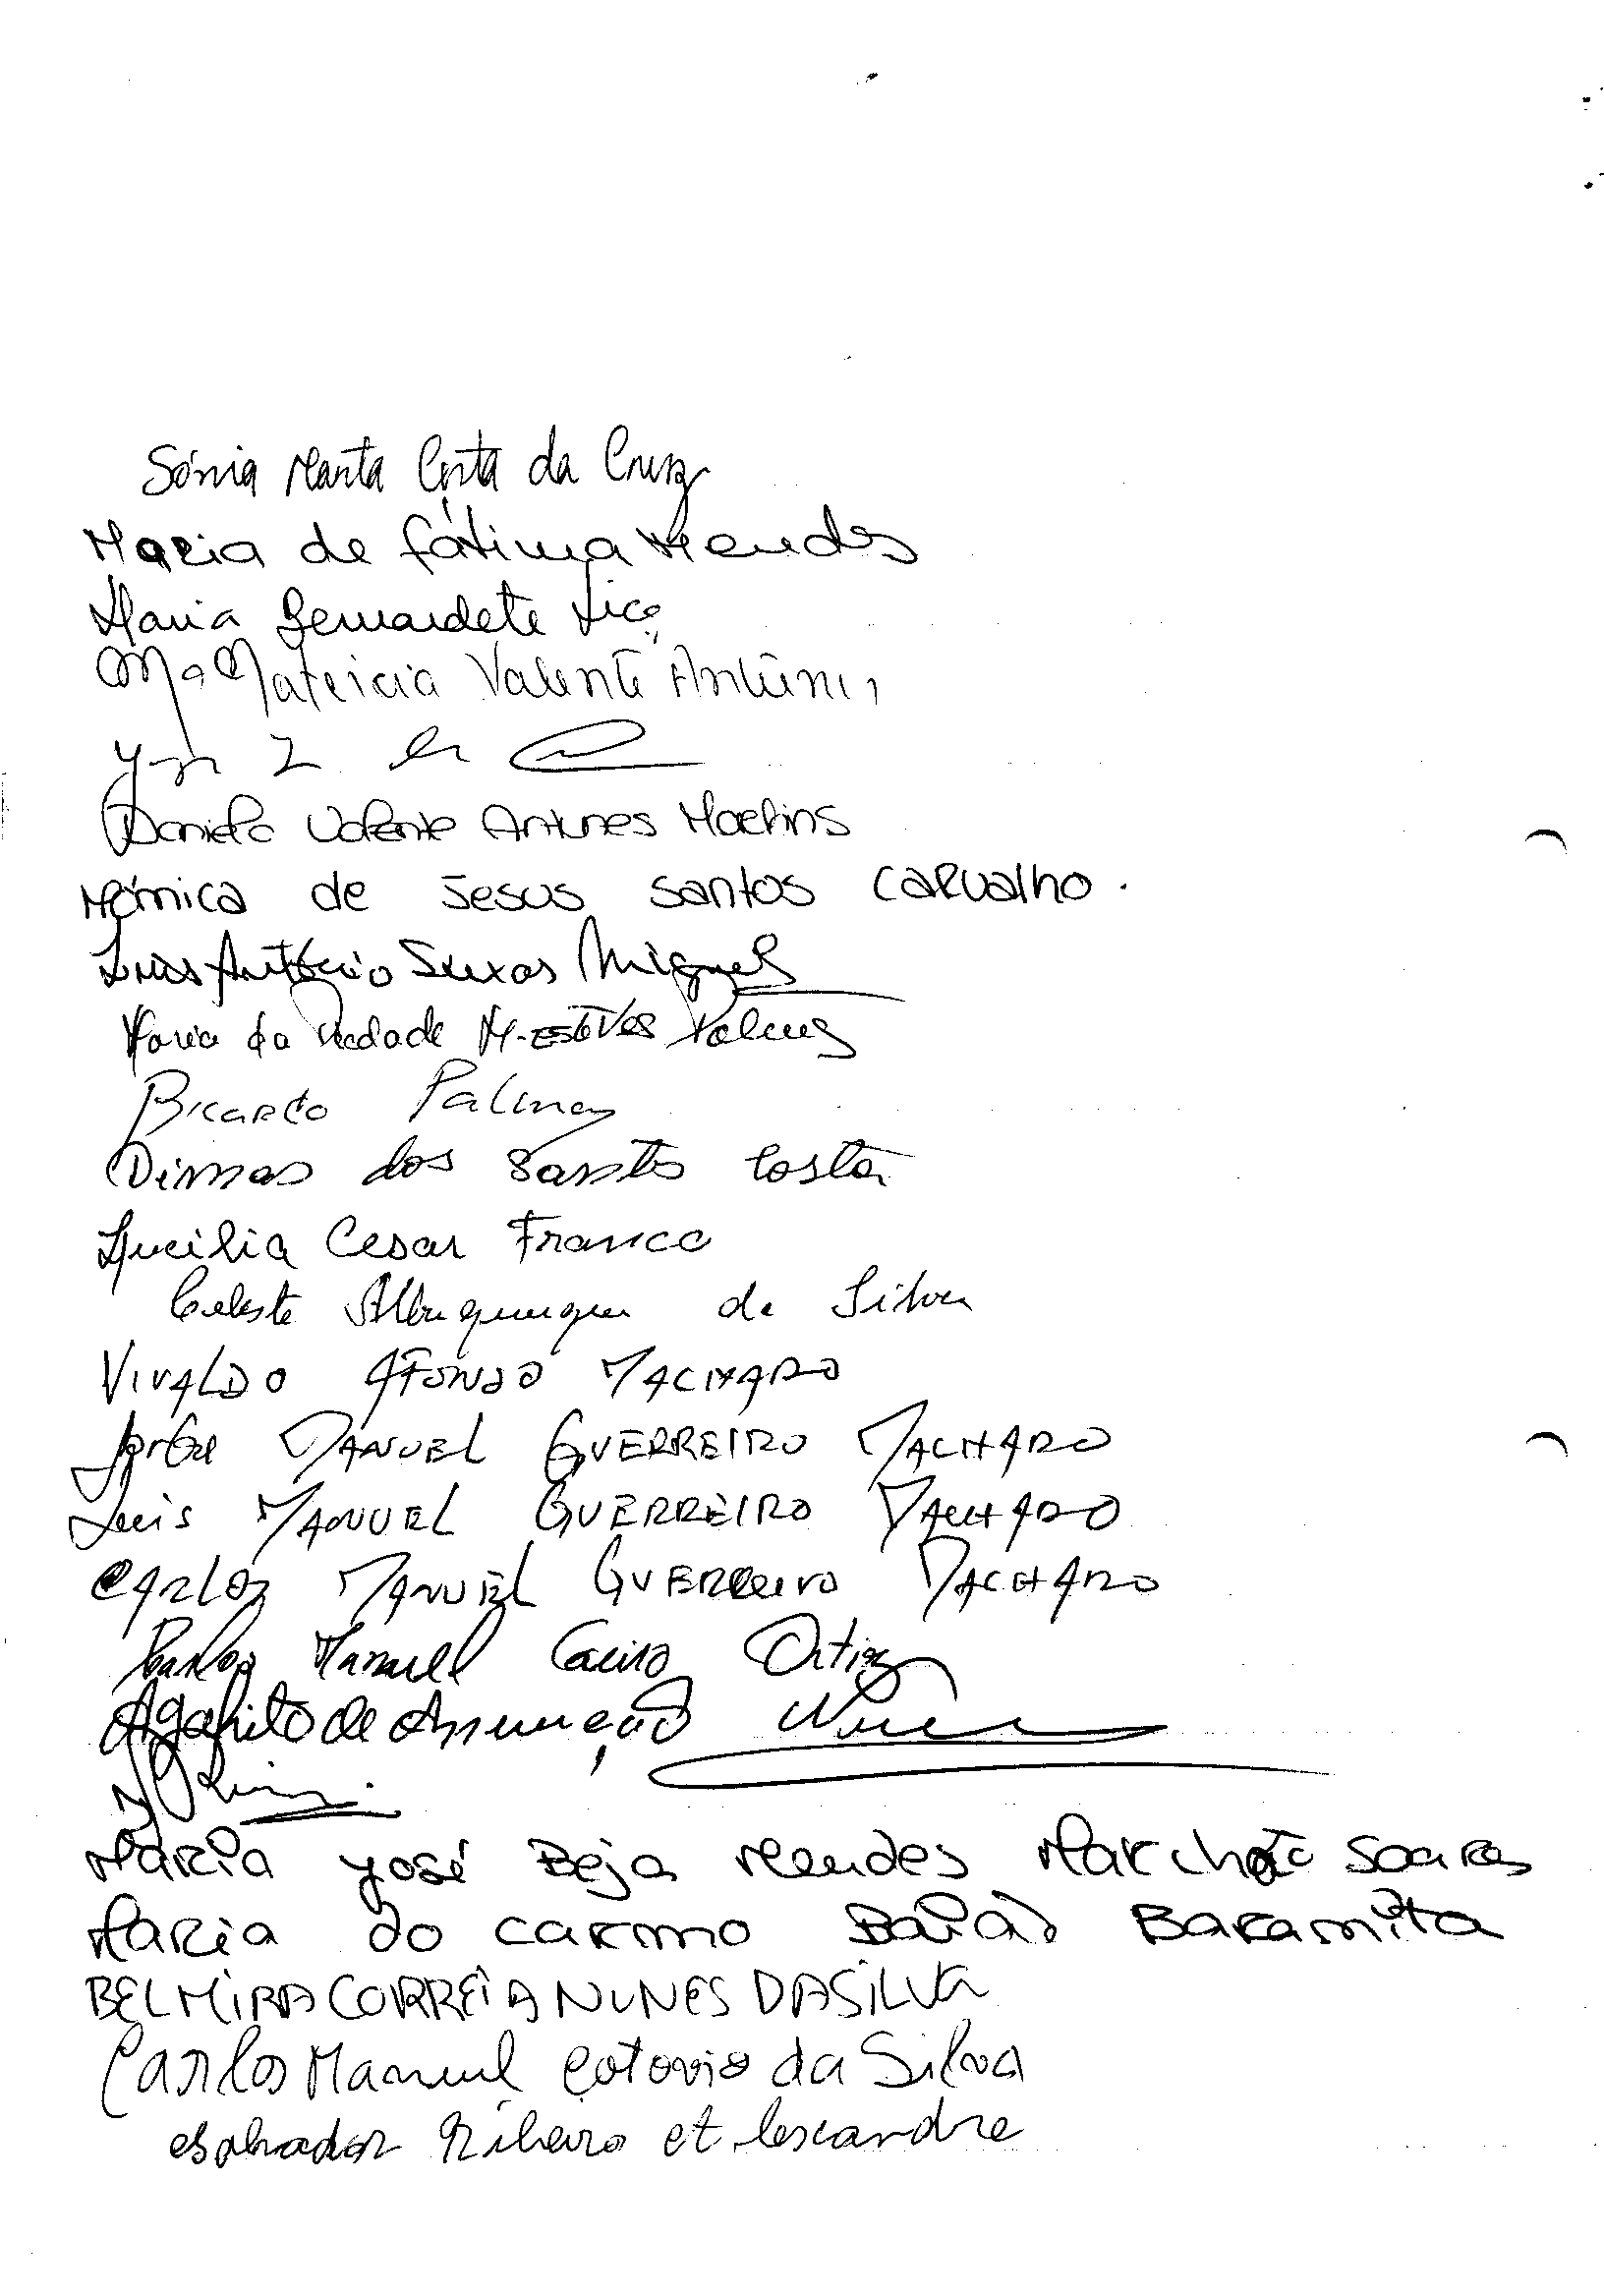 Sónia Marta Costa da Cruz
Maria de Fátima Mendes
Maria Bernardete
Mª Valente Antunes
Daniela Valente Antunes Martins
Mónica de Jesus Santos Carvalho.
Luis António Seixas Miguel
Maria da Piedade M. Esteves Palma
Ricardo Palma
Dimas dos Santos Costa
Lucilia Cesar Franco
Celeste Albuquerque da Silva
VIVALDO AFONSO MACHADO
Jorge MANUEL GUERREIRO MACHADO
Luis MANUEL GUERREIRO MACHADO
CARLOS MANUEL GUERREIRO MACHADO
Carlos Manuel Cairo Ortiz
Agapito de Assunção
Maria José Beja Mendes Marchão Soares
Maria do Carmo Baião Baramita
BELMIRA CORREIA NUNES DA SILVA
Carlos Manuel Cotovio da Silva
Ribeiro